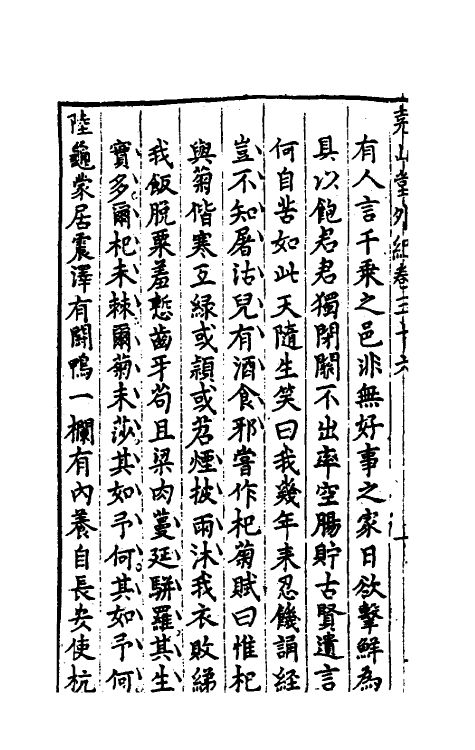 堯山堂外紀卷三十六
有人言千乘之邑非無好事之家日欲擊鮮為
具以飽君君獨閉關不出率空腸貯古賢遺言
何自苦如此天隨生笑曰我幾年來忍饑誦經
豈不知屠沽兒有酒食邪嘗作杞菊賦曰惟杞
與菊偕寒互綠或穎或苕煙披雨沐我衣敗綈
我飯脫粟羞慙齒牙苟且梁肉蔓延駢羅其生
實多爾杞未棘爾菊未莎其如予何其如予何
陸龜蒙居震澤有鬬鴨一欄有內養自長安使杭